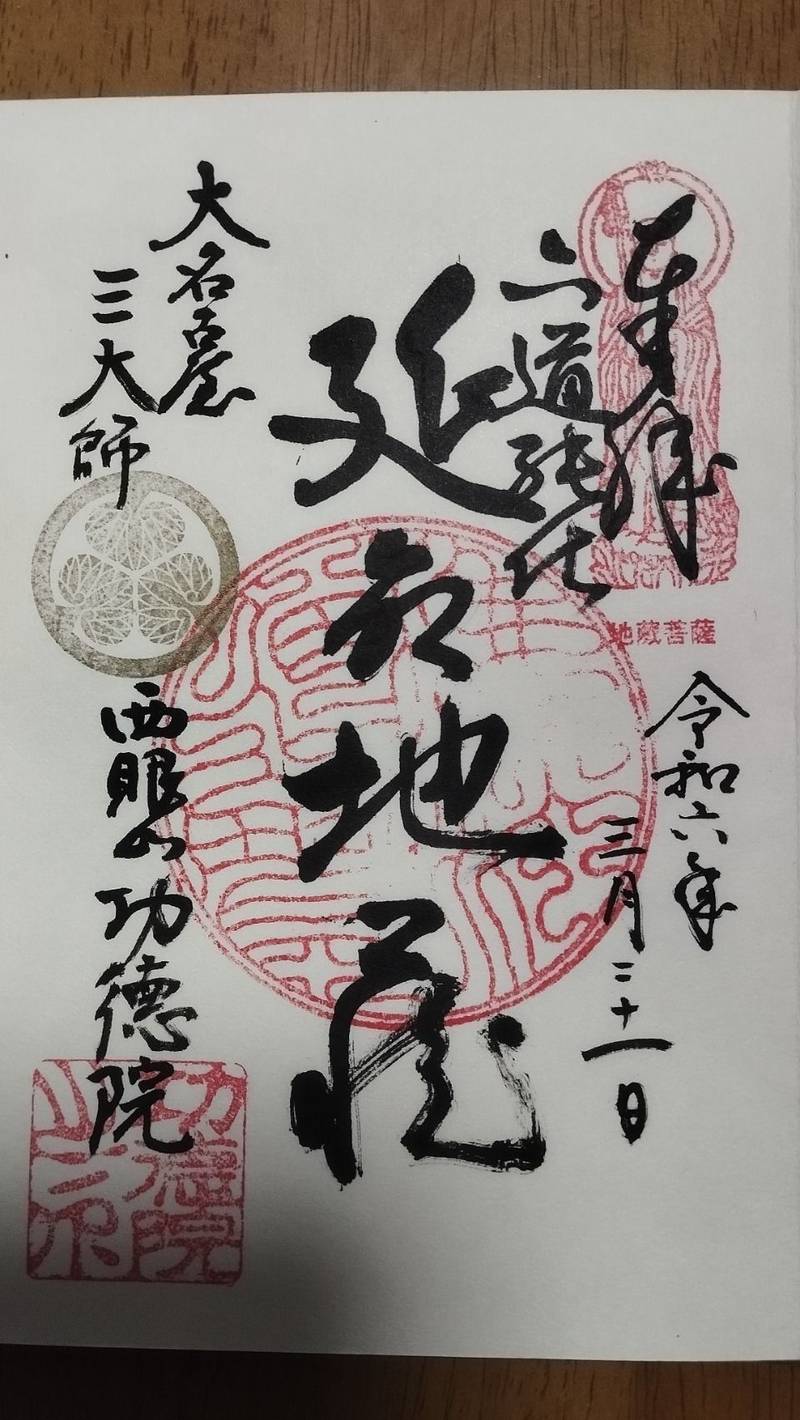 奉拝
六道能化
地蔵菩薩
令和六年
三月二十一日
延命地蔵
大名古屋
三大師
西眼山功徳院
功徳院
之印